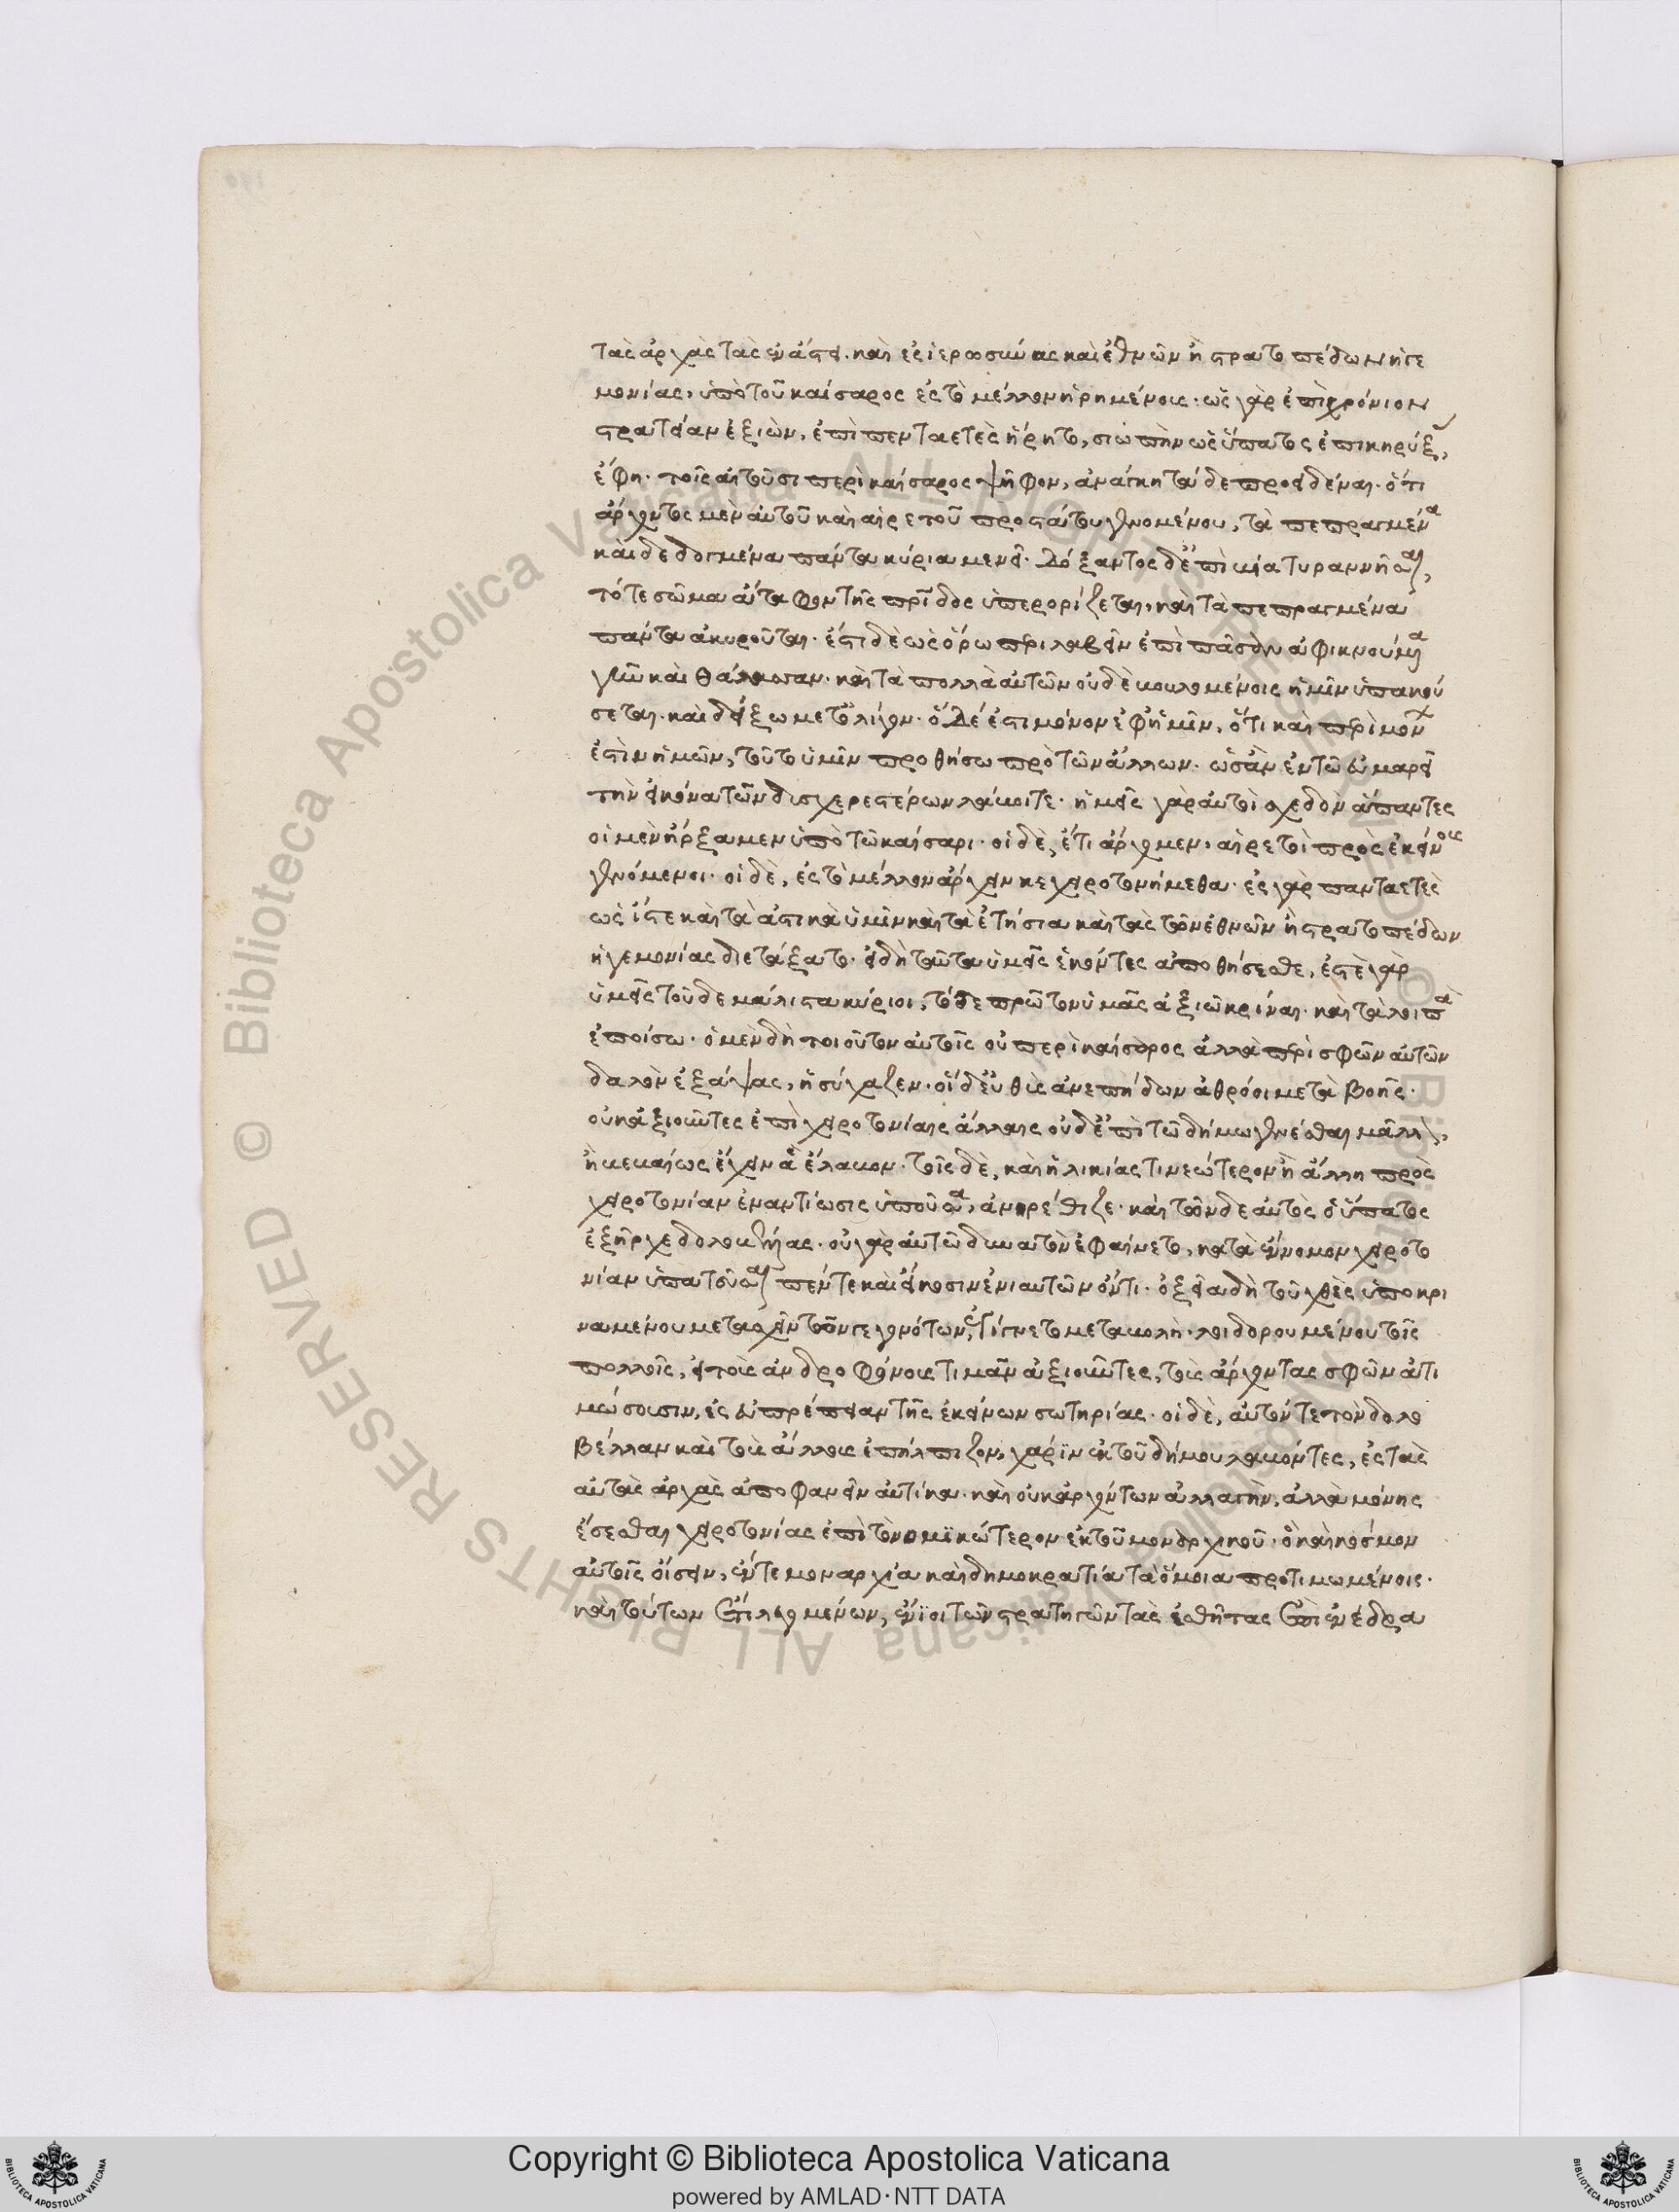 τὰς ἀρχὰς τὰς ἐν ἄστει. καὶ ἐς ἱερωσύνας καὶ ἐθνῶν ἢ στρατοπέδων ἡγε
μονίας, ὑπὸ τοῦ καίσαρος ἐς τὸ μέλλον ἡρημένους. ὡς γὰρ ἐπὶ χρόνιον
στρατείαν ἐξιὼν, ἐπὶ πενταετὲς ἥρητο, σιωπὴν ὡς ὕπατος ἐπικηρύξας,
ἔφη. τοῖς αἰτοῦσι περὶ καίσαρος ψῆφον, ἀνάγκη τάδε προειδέναι. ὅτι
ἄρχοντος μὲν αὐτοῦ καὶ αἱρετοῦ προστάτου γενομένου, τὰ πεπραγμένα
καὶ δεδογμένα πάντα κύρια μενεῖ. δόξαντος δ' ἐπὶ βία τυραννῆσαι,
τό τε σῶμα ἄταφον τῆς πατρίδος ὑπερορίζεται, καὶ τὰ πεπραγμένα
πάντα ἀκυροῦται. ἔστι δὲ ὡς ὅρω περιλαβεῖν ἐπὶ πᾶσαν ἀφικνούμενα
γῆν καὶ θάλασσαν. καὶ τὰ πολλὰ αὐτῶν οὐδὲ βουλομένοις ἡμῖν ὑπακού
σεται. καὶ δείξω μετ' ὀλίγον. ὃ δέ ἐστι μόνον ἐφ' ἡμῖν, ὅτι καὶ περὶ μόνων
ἐστὶν ἡμῶν, τοῦτο ὑμῖν προθήσω πρὸ τῶν ἄλλων. ὡς ἂν ἐν τῶ εὐμαρεῖ
τὴν εἰκόνα τῶν δυσχερεστέρων λάβοιτε. ἡμεῖς γὰρ αὐτοὶ σχεδὸν ἅπαντες
οἱ μὲν ἤρξαμεν ὑπὸ τῶ καίσαρι. οἱ δὲ, ἔτι ἄρχομεν, αἱρετοὶ πρὸς ἐκείνους
γενόμενοι. οἱ δὲ, ἐς τὸ μέλλον ἄρχειν κεχειροτονήμεθα. ἐς γὰρ πενταετὲς
ὡς ἴστε καὶ τὰ ἀστικὰ ὑμῖν καὶ τὰ ἐτήσια καὶ τὰς τῶν ἐθνῶν ἢ στρατοπέδων
ἡγεμονίας διετάξατο. εἰ δὴ ταῦτα ὑμεῖς ἑκόντες ἀποθήσεσθε, ἐστὲ γὰρ
ὑμεῖς τοῦδε μάλιστα κύριοι, τόδε πρῶτον ὑμᾶς ἀξιῶ κρίναι. καὶ τὰ λοιπὰ
ἐποίσω. ὁ μὲν δὴ τοιοῦτον αὐτοῖς οὐ περὶ καίσαρος ἀλλὰ περὶ σφῶν αὐτῶν
δαλὸν ἐξάψας, ἡσύχαζεν. οἱ δ' εὐθὺς ἀνεπήδων ἀθρόοι μετὰ βοῆς.
οὐκ ἀξιοῦντες ἐπὶ χειροτονίαις ἄλλαις οὐδ' ἐπὶ τῶ δήμω γενέσθαι μᾶλλον,
ἢ βεβαίως ἔχειν ἃ ἔλαβον. τοῖς δὲ, καὶ ἡλικίας τι νεώτερον ἢ ἄλλη πρὸς
χειροτονίαν ἐναντίωσις ὑποῦσα, ἀνηρέθιζε. καὶ τῶνδε αὐτὸς ὁ ὕπατος
ἐξῆρχε δολοβέλλας. οὐ γὰρ αὐτῶ δυνατὸν ἐφαίνετο, κατὰ ἔννομον χειροτο
νίαν ὑπατεῦσαι πέντε καὶ εἴκοσιν ἐνιαυτῶν ὄντι. ὀξεῖα δὴ τοῦ χθὲς ὑποκρι
ναμένου μετασχεῖν τῶν γεγονότων, ἐγίγνετο μεταβολὴ. λοιδορουμένου τοῖς
πολλοῖς, εἰ τοὺς ἀνδροφόνους τιμᾶν ἀξιοῦντες, τοὺς ἄρχοντας σφῶν ἀτι
μώσουσιν, ἐς εὐπρέπειαν τῆς ἐκείνων σωτηρίας. οἱ δὲ, αὐτόν τε τὸν δολο
βέλλαν καὶ τοὺς ἄλλους ἐπήλπιζον, χάριν ἐκ τοῦ δήμου λαβόντες, ἐς τὰς
αὐτὰς ἀρχὰς ἀποφανεῖν αὐτίκα. καὶ οὐκ ἀρχόντων ἀλλαγὴν, ἀλλὰ μόνης
ἔσεσθαι χειροτονίας ἐπὶ τὸ νομικώτερον ἐκ τοῦ μοναρχικοῦ. ὃ καὶ κόσμον
αὐτοῖς οἴσειν, ἔν τε μοναρχία καὶ δημοκρατία τὰ ὅμοια προτιμωμένοις.
καὶ τούτων ἔτι λεγομένων, ἔνιοι τῶν στρατηγῶν τὰς ἐσθῆτας ἐπὶ ἐνέδρα